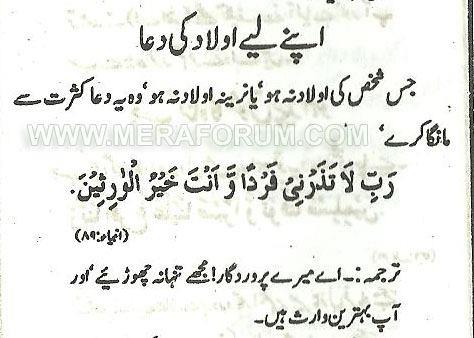 اپنے لیے اولاد کی دعا
جس شخص کی اولاد نہ ہو‘ یا نرینہ اولاد نہ ہو‘ وہ یہ دعا کثرت سے
مانگا کرے‘
WWW.MERAFORUM.COM
رَبِّ لَا تَذَرْنِیْ فَرْدًا وَّ اَنْتَ خَیْرُ الْوٰرِثِیْنَ۔
(انبیاء: ۸۹)
ترجمہ:۔ اے میرے پروردگار! مجھے تنہا نہ چھوڑیئے‘ اور
آپ بہترین وارث ہیں۔